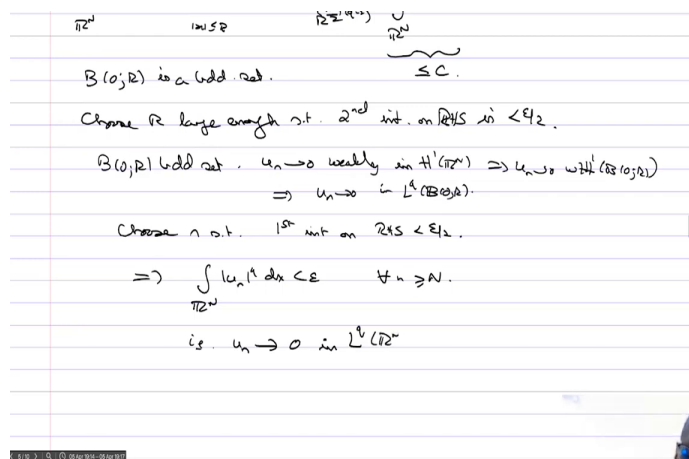 ℝᴺ |x|≤R ℝᴺ
B(0;R) is a bdd. set. ≤ C.
Choose R large enough s.t. 2nd int. on RHS is < ε/2.
B(0;R) bdd set. uₙ→0 weakly in H¹(ℝᴺ) ⇒ uₙ→0 w H¹(B(0;R))
⇒ uₙ→0 in L^q(B(0;R)).
Choose n s.t. 1st int on RHS < ε/2.
⇒ ∫ |uₙ|^q dx < ε ∀ n ≥ N.
ℝᴺ
ie. uₙ → 0 in L^q(ℝᴺ